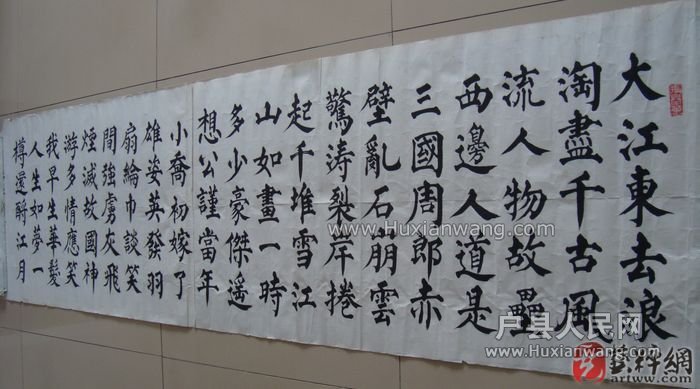 大江東去浪
淘盡千古風
流人物故壘
西邊人道是
三國周郎赤
壁亂石崩雲
驚涛梨岸捲
起千堆雪江
山如畫一時
多少豪傑遥
想公謹當年
小喬初嫁了
雄姿英發羽
扇綸巾談笑
間強虜灰飛
煙滅故國神
游多情應笑
我早生華髮
人生如夢一
樽還酹江月
www.Huxianwang.com
户县人民网
www.Huxianwang.com
藝粹網
artww.com